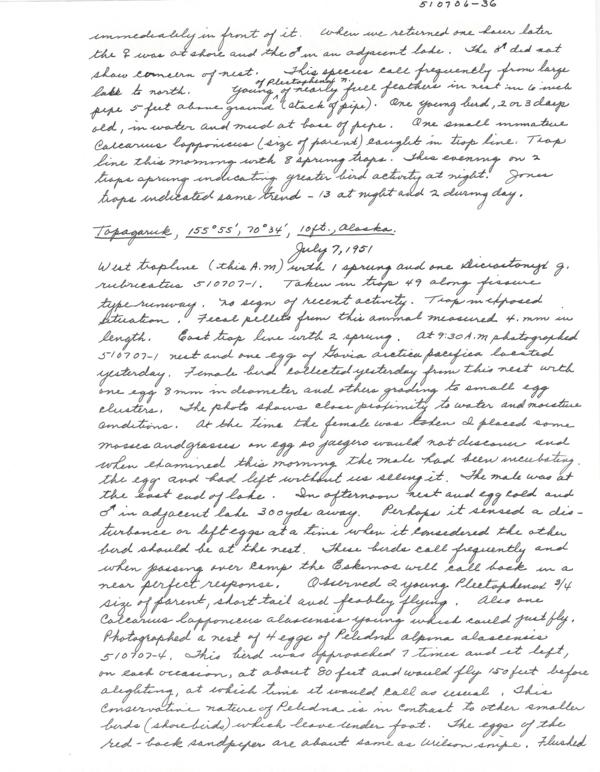 510706-36
immediately in front of it. When we returned one hour later
the ♀ was at shore and the ♂ in an adjacent lake. The ♂ did not
show concern of nest. This species call frequently from large
lake to north. Young of Plectophenax n. nearly full feathers in nest in 6 inch
pipe 5 feet above ground (stack of pipe). One young bird, 2 or 3 days
old, in water and mud at base of pipe. One small immature
Calcarius lapponicus (size of parent) caught in trap line. Trap
line this morning with 8 sprung traps. This evening on 2
traps sprung indicating greater bird activity at night. Jones
traps indicated same trend - 13 at night and 2 during day.
Topagaruk, 155°55', 70°34', 10ft., Alaska.
July 7, 1951
West trapline (this A.M) with 1 sprung and one Dicrostonyx g.
rubricatus 510707-1. Taken in trap 49 along fissure
type runway. No sign of recent activity. Trap in exposed
situation. Fecal pellets from this animal measured 4. mm in
length. East trap line with 2 sprung. At 9:30 A.M photographed
510707-1 nest and one egg of Gavia arctica pacifica located
yesterday. Female bird collected yesterday from this nest with
one egg 8 mm in diameter and others grading to small egg
clusters. The photo shows close proximity to water and moisture
conditions. At the time the female was taken I placed some
mosses and grasses on egg so jaegers would not discover and
when examined this morning the male had been incubating
the egg and had left without us seeing it. The male was at
the east end of lake. In afternoon nest and egg cold and
♂ in adjacent lake 300 yds away. Perhaps it sensed a dis-
turbance or left eggs at a time when it considered the other
bird should be at the nest. These birds call frequently and
when passing over camp the Eskimos will call back in a
near perfect response. Observed 2 young Plectophenax 3/4
size of parent, short tail and feebley flying. Also one
Calcarius lapponicus alascensis young which could just fly.
Photographed a nest of 4 eggs of Pelidna alpina alascensis
510707-4. This bird was approached 7 times and it left,
on each occasion, at about 80 feet and would fly 150 feet before
alighting, at which time it would call as usual. This
conservative nature of Pelidna is in contrast to other smaller
birds (shore birds) which leave under foot. The eggs of the
red-back sandpiper are about same as Wilson snipe. Flushed